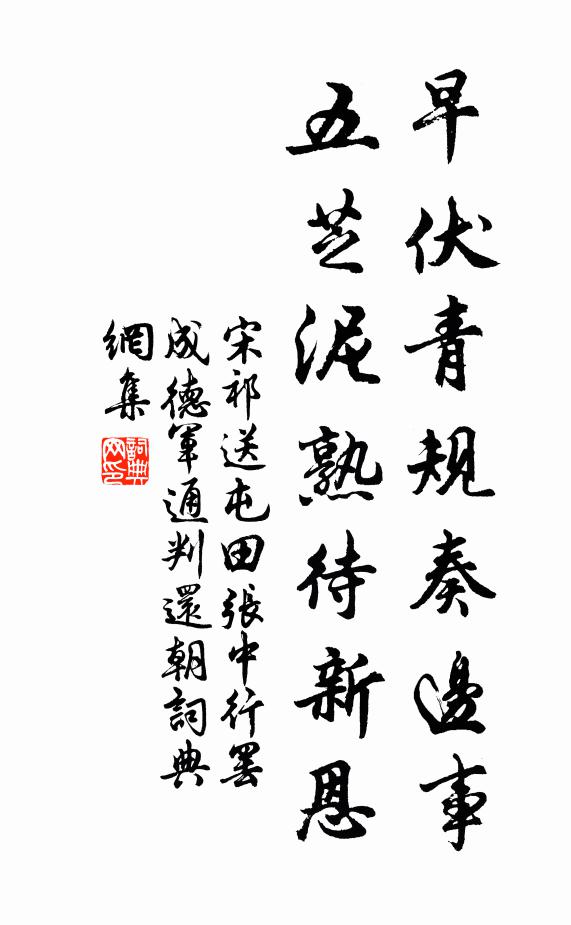 早伏青規奏邊事
五芝泥熟待新恩
宋祁送屯田張中行罷
成德軍通判還朝詞典
網集
詞典網印